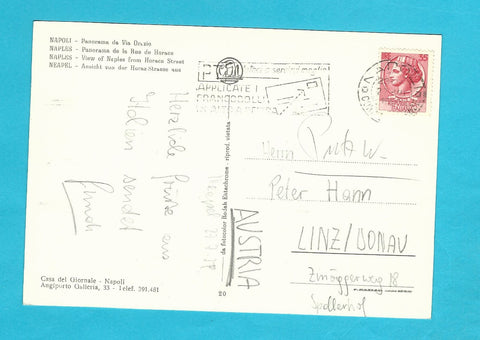 NAPOLI - Panorama da Via Orazio
NAPLES - Panorama de la Rue de Horace
NAPLES - View of Naples from Horace Street
NEAPEL - Ansicht aus der Horaz-Strasse aus
APPLICATE I
FRANCOBOLLI
IN ALTO A DESTRA
Herzliche Grüße aus
Italien sendet
Casa del Giornale - Napoli
Angiporto Galleria, 33 - Telef. 391.481
da fotocolor Kodak Ektachrome - riprod. vietata
20
Herrn
Peter Hann
LINZ/DONAU
18
AUSTRIA